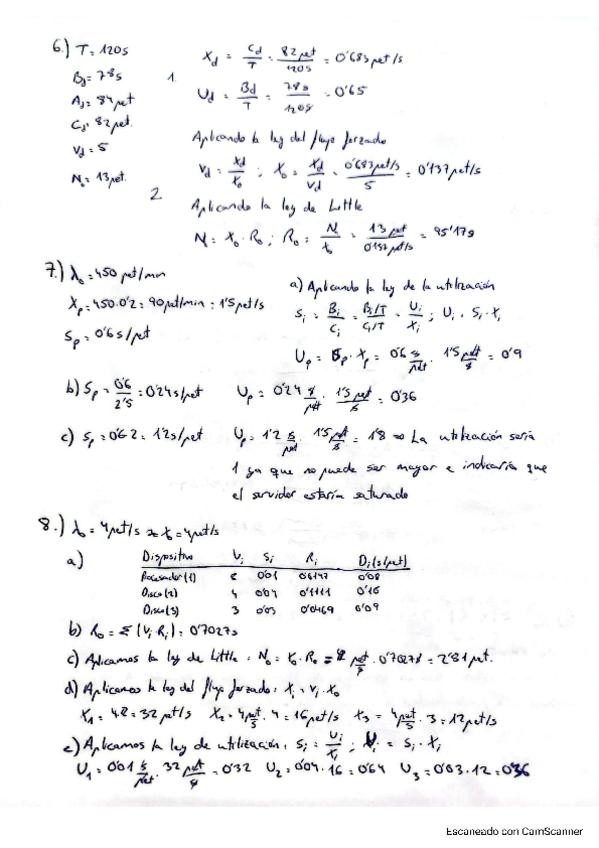 6.) T = 120s
B_d = 78s
A_d = 84 pet
C_d = 82 pet.
V_d = 5
N_0 = 13 pet.
1. X_d = C_d/T = 82 pet/120 s = 0'683 pet/s
U_d = B_d/T = 78 s/120 s = 0'65
Aplicando la ley del flujo forzado
V_d = X_d/X_0 ; X_0 = X_d/V_d = 0'683 pet/s/5 = 0'137 pet/s
2. Aplicando la ley de Little
N = X_0 · R_0 ; R_0 = N/X_0 = 13 pet/0'137 pet/s = 95'17 s
7.) λ_0 = 450 pet/min
X_p = 450·0'2 = 90 pet/min = 1'5 pet/s
S_p = 0'6 s/pet
a) Aplicando la ley de la utilización
S_i = B_i/C_i = B_i/T/C_i/T = U_i/X_i ; U_i = S_i · X_i
U_p = S_p · X_p = 0'6 s/pet · 1'5 pet/s = 0'9
b) S_p = 0'6/2'5 = 0'24 s/pet U_p = 0'24 s/pet · 1'5 pet/s = 0'36
c) S_p = 0'6·2 = 1'2 s/pet U_p = 1'2 s/pet · 1'5 pet/s = 1'8 => La utilización sería
1 ya que no puede ser mayor e indicaría que
el servidor estaría saturado
8.) λ_0 = 4 pet/s => X_0 = 4 pet/s
a) Dispositivo V_i S_i R_i D_i (s/pet)
Procesador (1) 8 0'01 0'0147 0'08
Disco (2) 4 0'04 0'1111 0'16
Disco (3) 3 0'03 0'0469 0'09
b) R_0 = Σ (V_i · R_i) = 0'7027 s
c) Aplicamos la ley de Little: N_0 = X_0 · R_0 = pet/s · 0'7027 s = 2'81 pet.
d) Aplicamos la ley del flujo forzado: X_i = V_i · X_0
X_1 = 4·8 = 32 pet/s X_2 = 4 pet/s · 4 = 16 pet/s X_3 = 4 pet/s · 3 = 12 pet/s
e) Aplicamos la ley de utilización: S_i = U_i/X_i ; U_i = S_i · X_i
U_1 = 0'01 s/pet · 32 pet/s = 0'32 U_2 = 0'04 · 16 = 0'64 U_3 = 0'03 · 12 = 0'36
Escaneado con CamScanner